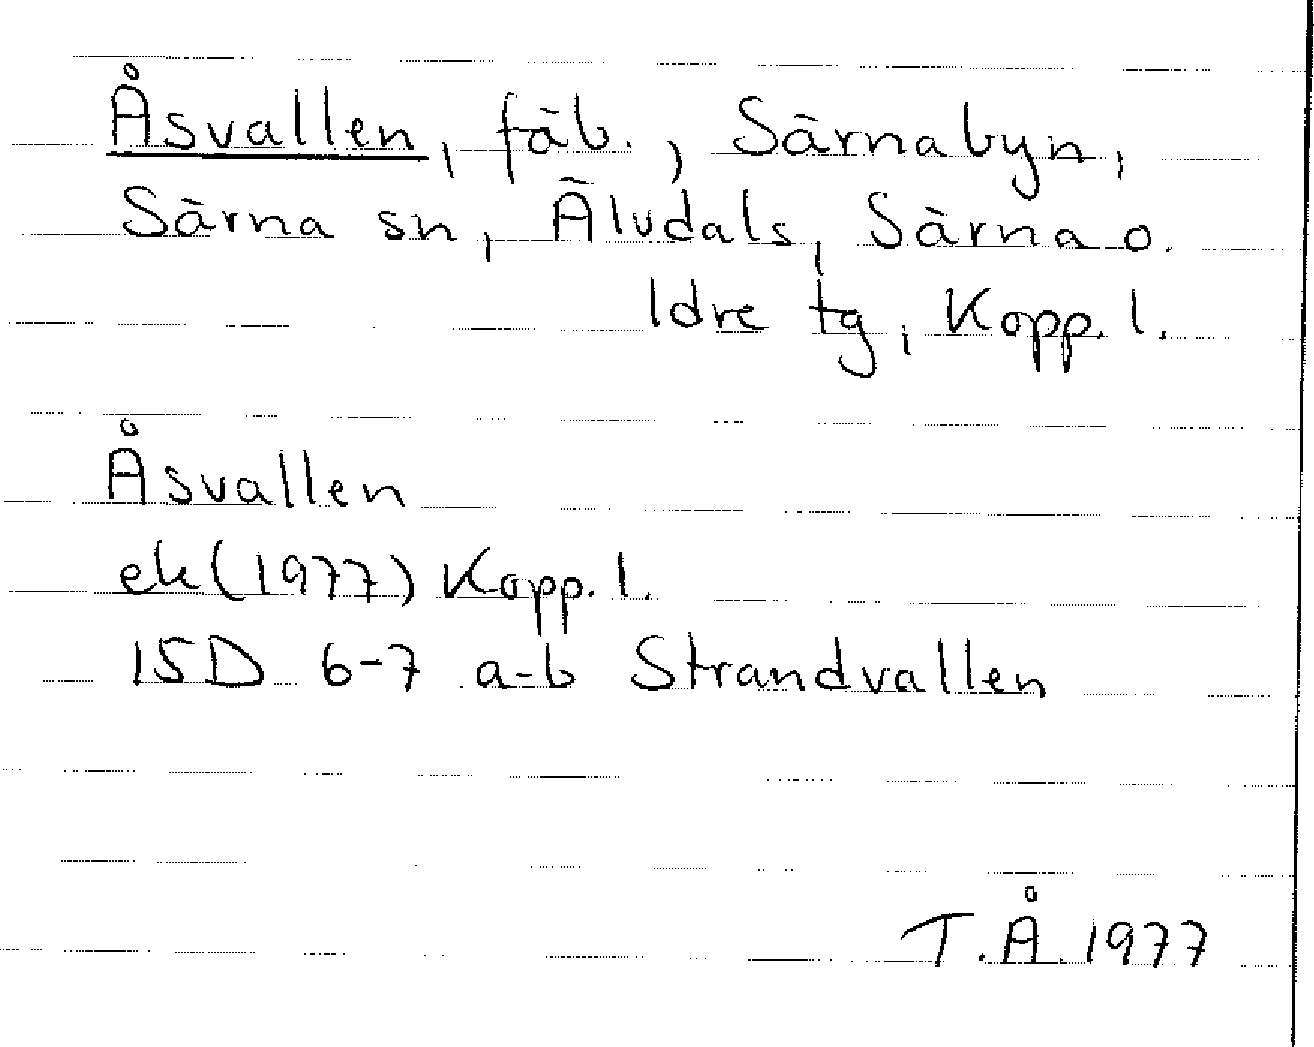 Åsvallen, fäb., Särnabyn,
Särna sn, Älvdals, Särna o.
Idre tg, Kopp. l.
Åsvallen
ek (1977) Kopp. l.
15D 6-7 a-b Strandvallen
T.Å. 1977